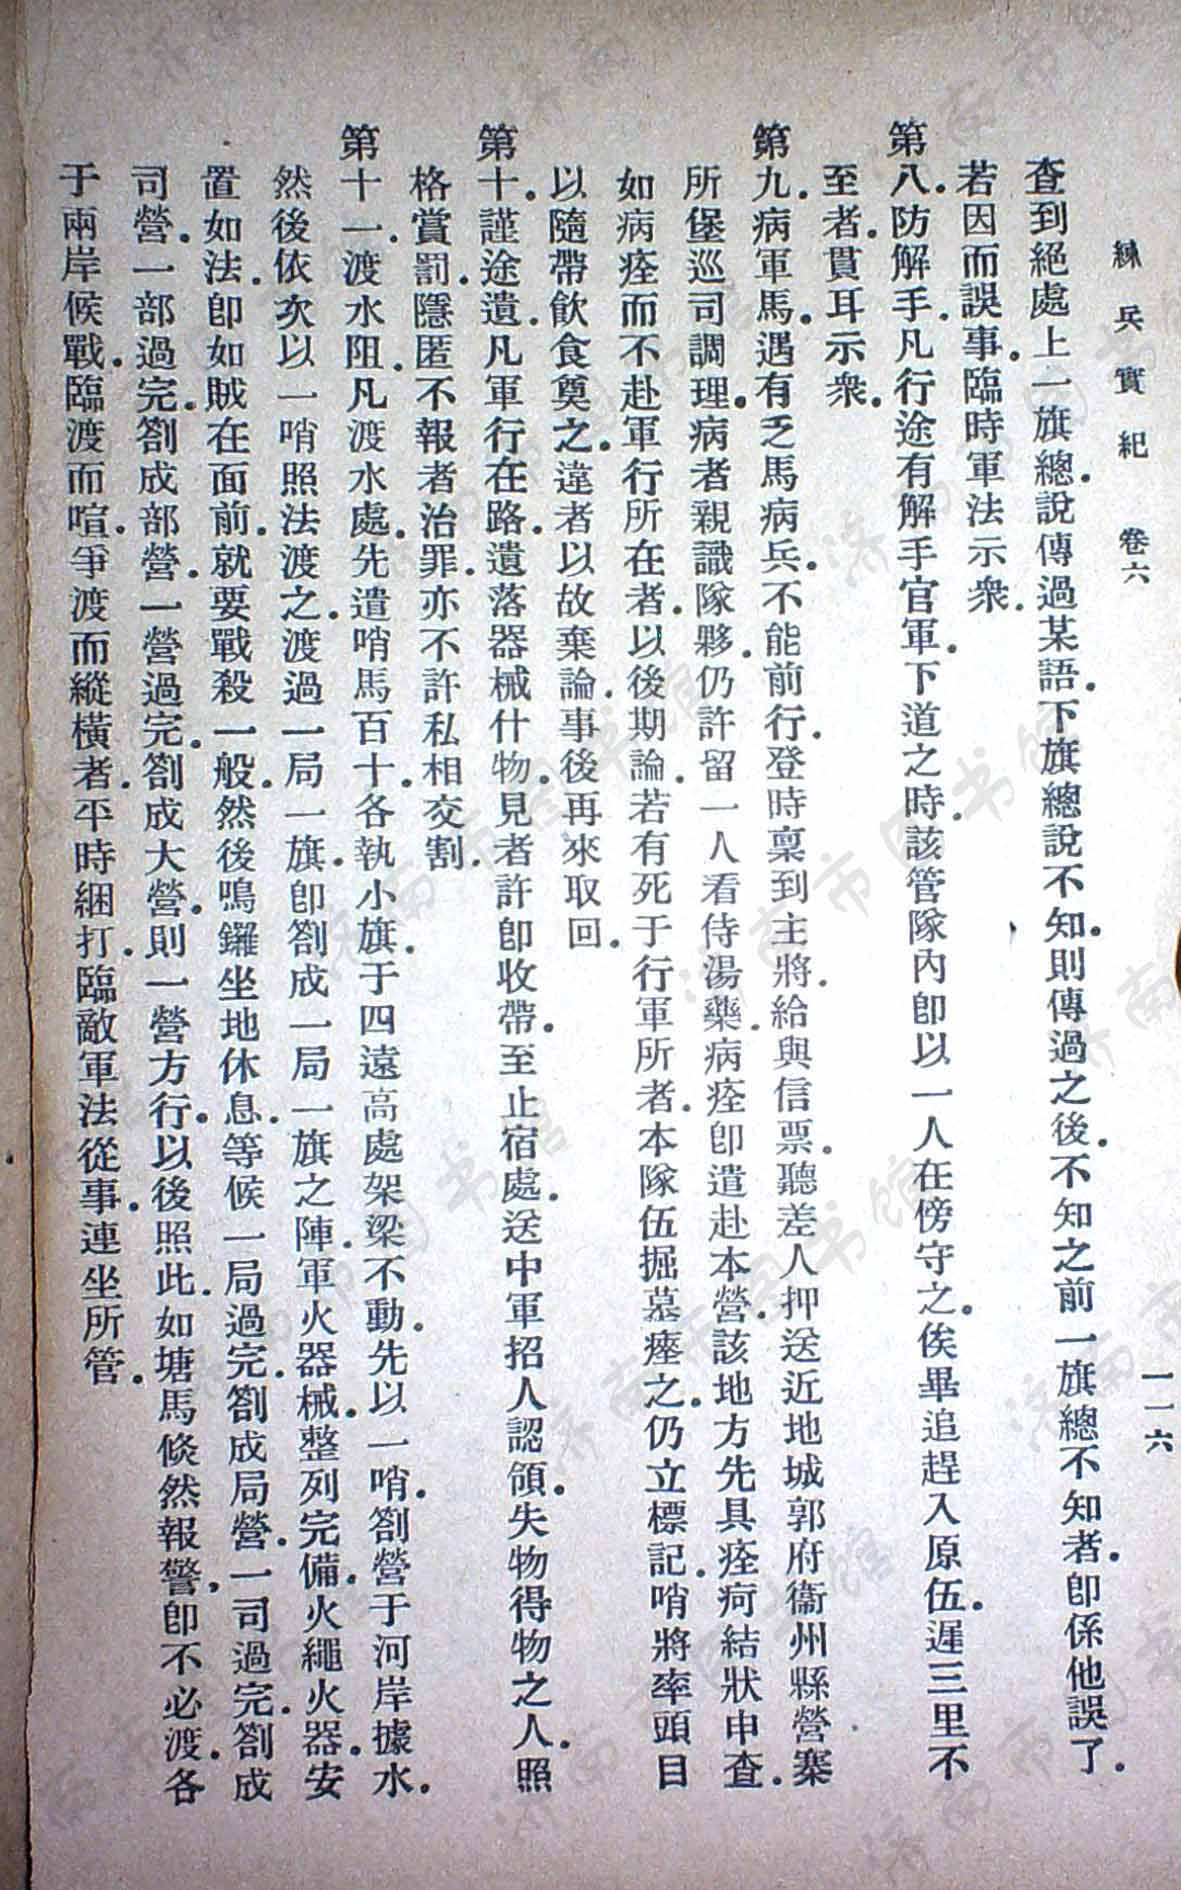 練兵實紀 卷六 一一六
查到絕處上一旗總.說傳過某語.下旗總說不知.則傳過之後.不知之前一旗總不知者.卽係他誤了.
若因而誤事.臨時軍法示衆.
第八.防解手.凡行途有解手官軍.下道之時.該管隊內卽以一人在傍守之.俟畢追趕入原伍.遲三里不
至者.貫耳示衆.
第九.病軍馬.遇有乏馬病兵.不能前行.登時稟到主將.給與信票.聽差人押送近地城郭府衞州縣營寨
所堡巡司調理.病者親識隊夥.仍許留一人看侍湯藥.病痊卽遣赴本營.該地方先具痊疴結狀申查.
如病痊而不赴軍行所在者.以後期論.若有死于行軍所者.本隊伍掘墓瘞之.仍立標記.哨將率頭目
以隨帶飲食奠之.違者以故棄論.事後再來取回.
第十.謹途遺.凡軍行在路.遺落器械什物.見者許卽收帶.至止宿處.送中軍招人認領.失物得物之人.照
格賞罰.隱匿不報者治罪.亦不許私相交割.
第十一.渡水阻.凡渡水處.先遣哨馬百十.各執小旗.于四遠高處架梁不動.先以一哨.劄營于河岸據水.
然後依次以一哨照法渡之.渡過一局一旗.卽劄成一局一旗之陣.軍火器械.整列完備.火繩火器.安
置如法.卽如賊在面前.就要戰殺一般.然後鳴鑼坐地休息.等候一局過完.劄成局營.一司過完.劄成
司營.一部過完.劄成部營.一營過完.劄成大營.則一營方行.以後照此.如塘馬倐然報警.卽不必渡.各
于兩岸候戰.臨渡而喧.爭渡而縱橫者.平時綑打.臨敵軍法從事.連坐所管.
济南市图书馆